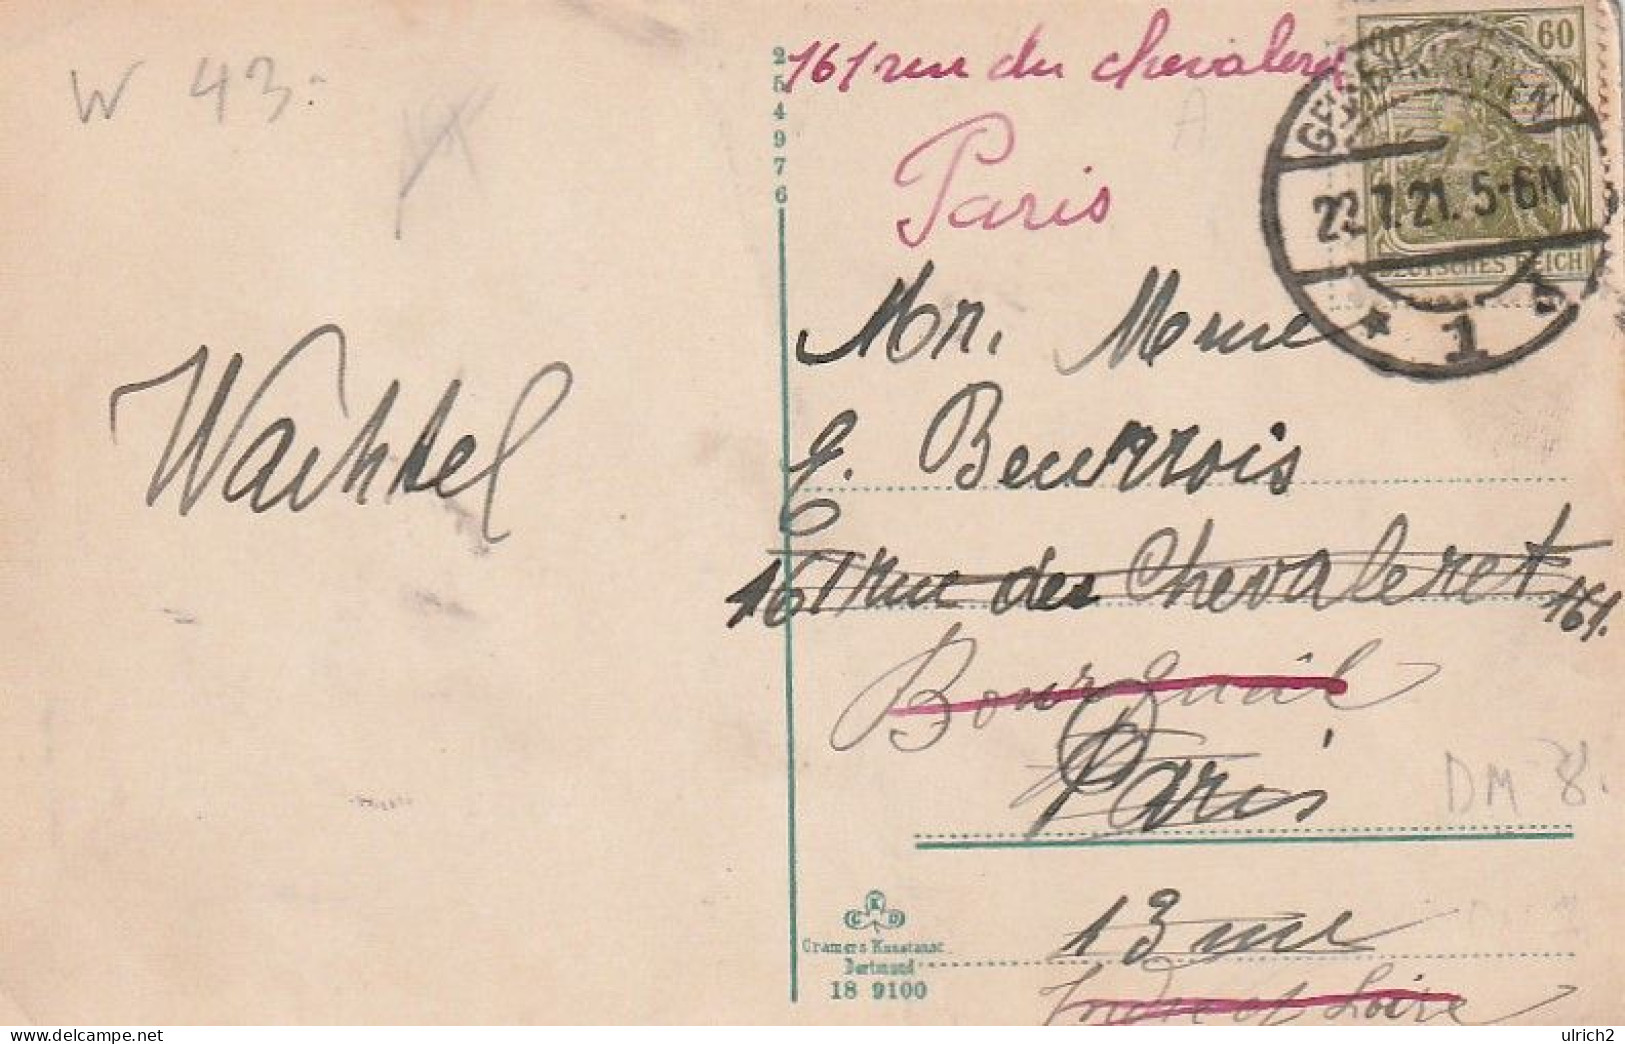 W 43.-
254976
161 rue du chevaleret
Paris
60 60
DEUTSCHES REICH
GELSENKIRCHEN
22.7.21. 5-6N
* 1
Mr. Mme
G. Beurrois
161 rue des Chevaleret 161.
Bourgueil
Paris
13 me
Indre et Loire
Wachtel
DM 8.
A
C K D
Cramers Kunstanst.
Dortmund
18 9100
ulrich2